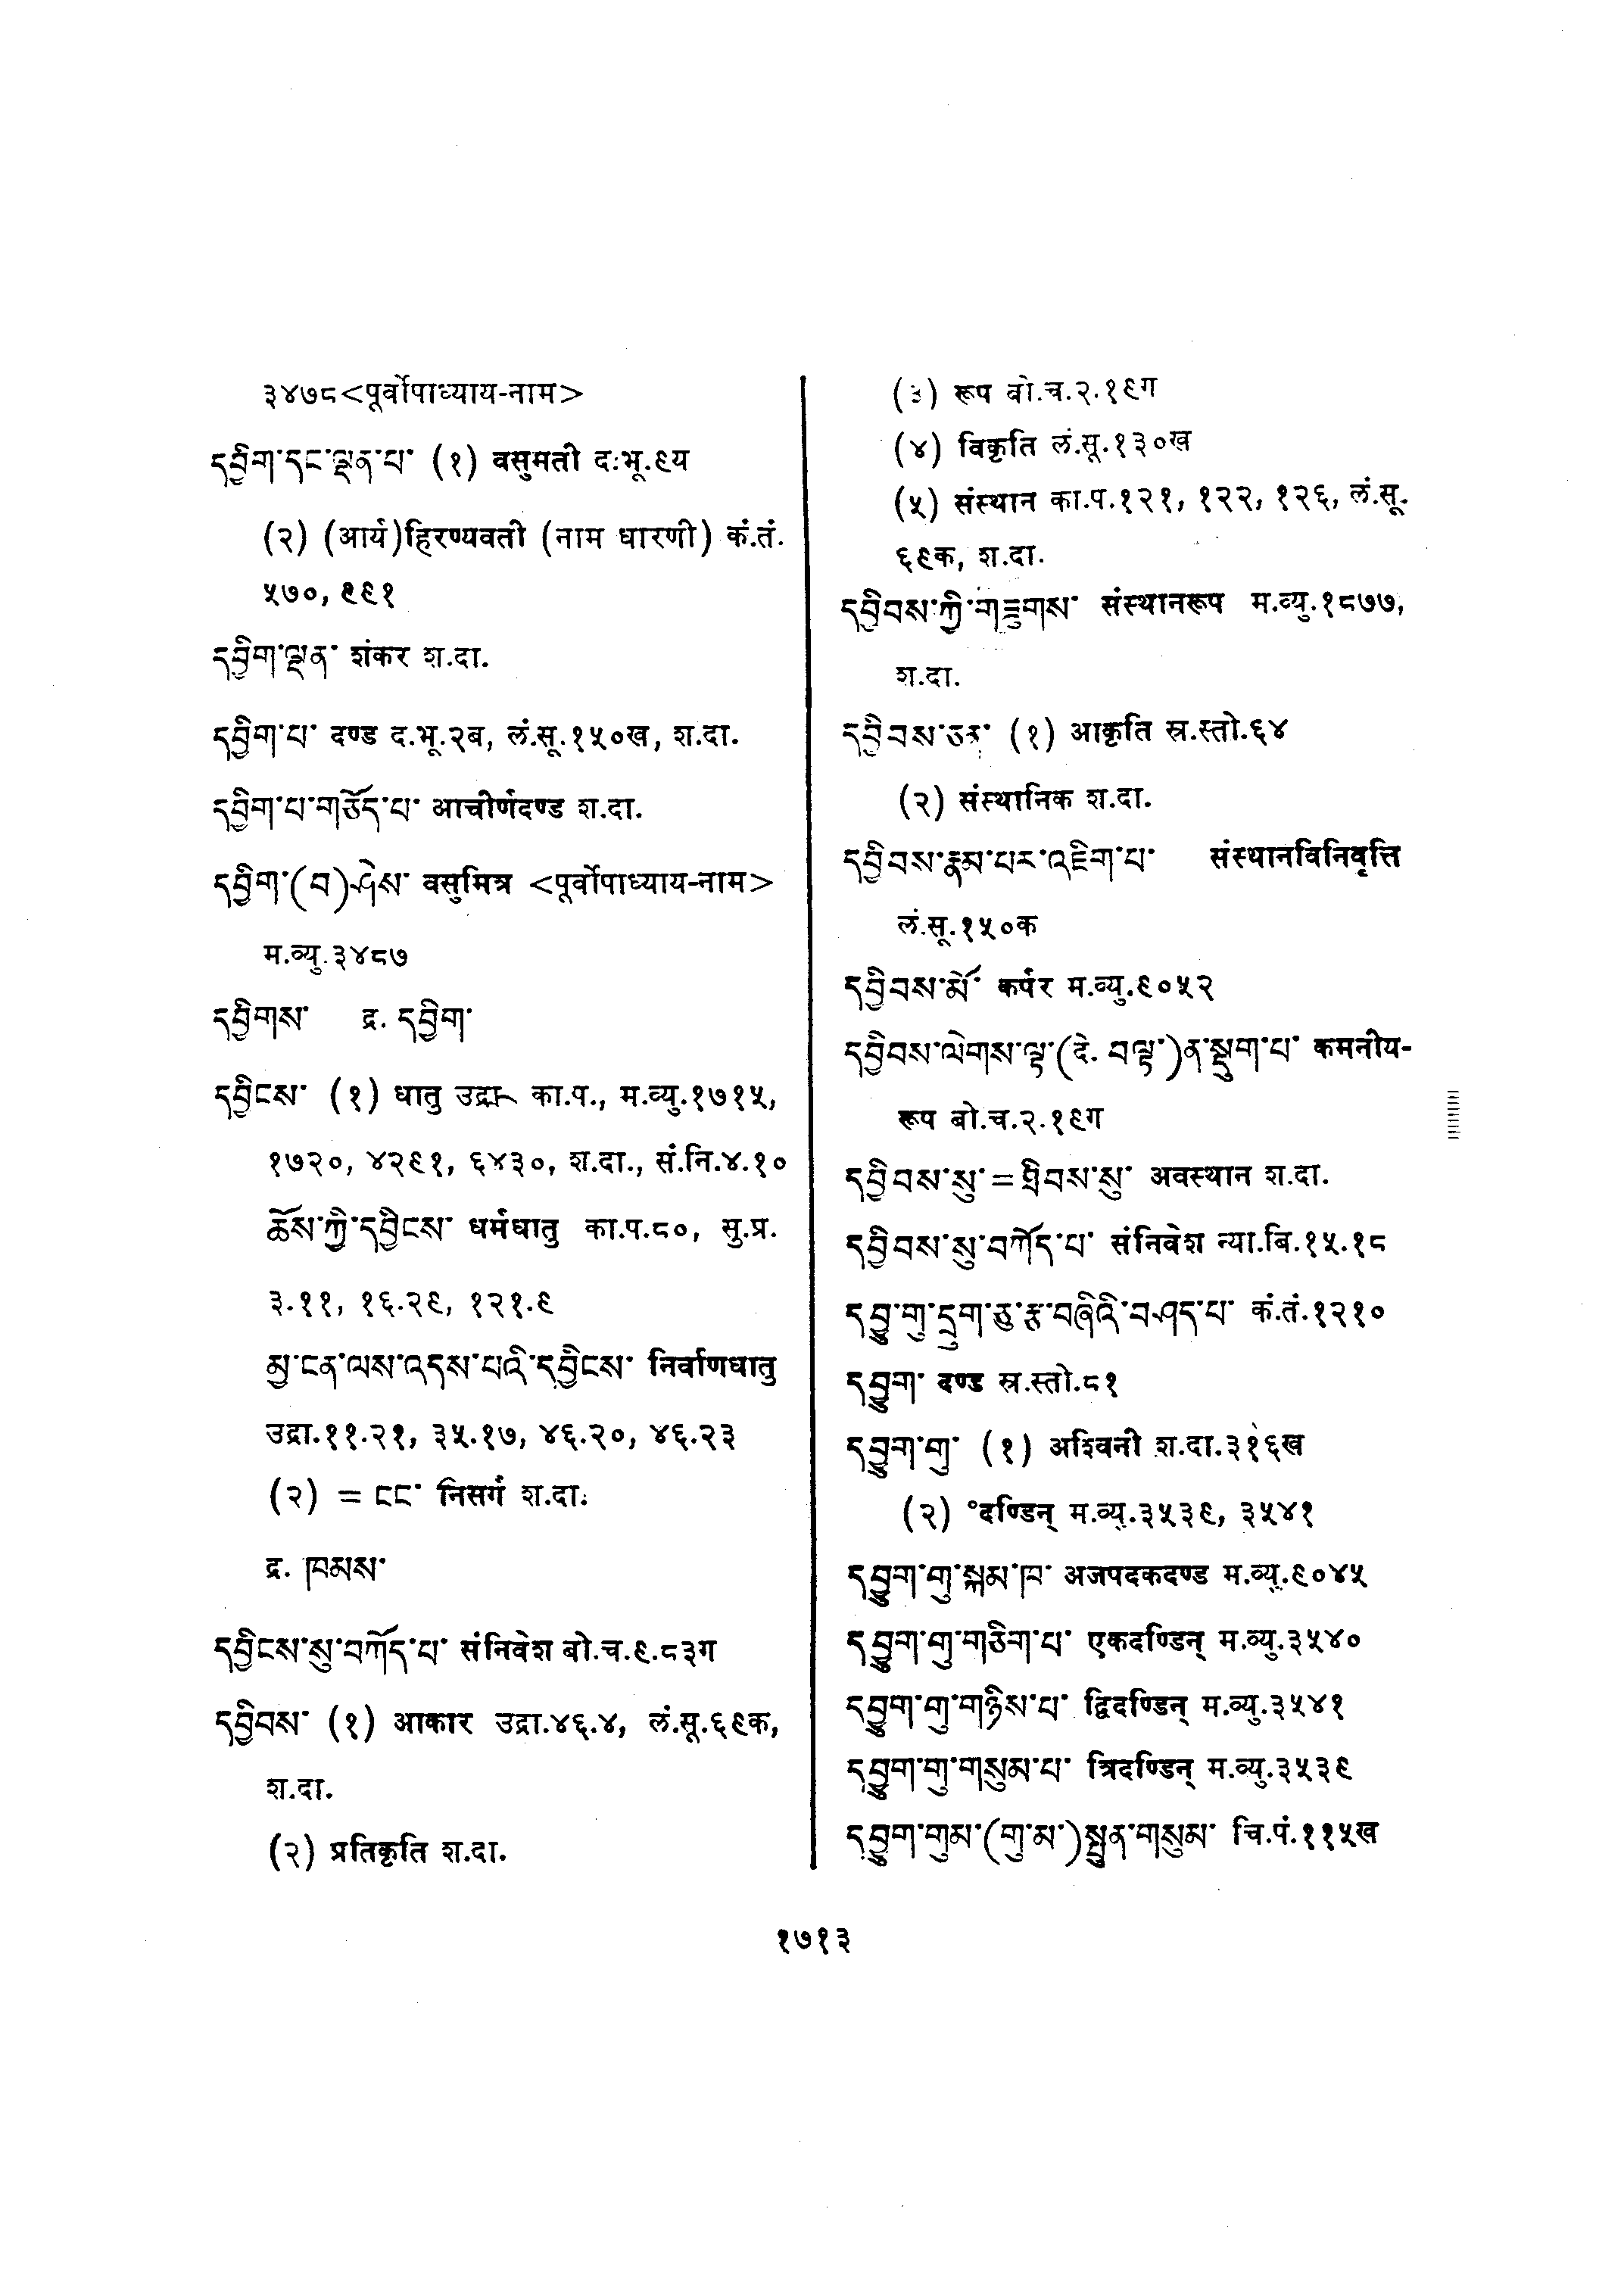 ३४७८<पूर्वोपाध्याय-नाम>
དབྱིག་དང་ལྡན་པ་ (१) वसुमती द.भू.९य
(२) (आर्य)हिरण्यवती (नाम धारणी) कं.तं.
५७०, ९९१
དབྱིག་ལྡན་ शंकर श.दा.
དབྱིག་པ་ दण्ड द.भू.२ब, लं.सू.१५०ख, श.दा.
དབྱིག་པ་གཅོད་པ་ आचीर्णदण्ड श.दा.
དབྱིག་(བ)ཤེས་ वसुमित्र <पूर्वोपाध्याय-नाम>
म.व्यु.३४८७
དབྱིགས་ द्र. དབྱིག་
དབྱིངས་ (१) धातु का.प., म.व्यु.१७१५,
१७२०, ४२९१, ६४३०, श.दा., सं.नि.४.१०
ཆོས་ཀྱི་དབྱིངས་ धर्मधातु का.प.८०, सु.प्र.
३.११, १६.२९, १२१.९
མྱ་ངན་ལས་འདས་པའི་དབྱིངས་ निर्वाणधातु
उद्रा.११.२१, ३५.१७, ४६.२०, ४६.२३
(२) = ངང་ निसर्ग श.दा.
द्र. ཁམས་
དབྱིངས་སུ་བཀོད་པ་ संनिवेश बो.च.९.८३ग
དབྱིབས་ (१) आकार उद्रा.४६.४, लं.सू.६९क,
श.दा.
(२) प्रतिकृति श.दा.
(३) रूप बो.च.२.१९ग
(४) विकृति लं.सू.१३०ख
(५) संस्थान का.प.१२१, १२२, १२६, लं.सू.
६९क, श.दा.
དབྱིབས་ཀྱི་གཟུགས་ संस्थानरूप म.व्यु.१८७७,
श.दा.
དབྱིབས་ཅན་ (१) आकृति स्र.स्तो.६४
(२) संस्थानिक श.दा.
དབྱིབས་རྣམ་པར་འཇིག་པ་ संस्थानविनिवृत्ति
लं.सू.१५०क
དབྱིབས་མོ་ कर्पर म.व्यु.९०५२
དབྱིབས་ལེགས་ལྟ་(དེ. བལྟ་)ན་སྡུག་པ་ कमनीय-
रूप बो.च.२.१९ग
དབྱིབས་སུ་=ཐྲིབས་སུ་ अवस्थान श.दा.
དབྱིབས་སུ་བཀོད་པ་ संनिवेश न्या.बि.१५.१८
དབྱུ་གུ་དྲུག་ཅུ་རྩ་བཞིའི་བཤད་པ་ कं.तं.१२१०
དབྱུག་ दण्ड स्र.स्तो.८१
དབྱུག་གུ་ (१) अश्विनी श.दा.३१६ख
(२) °दण्डिन् म.व्यु.३५३९, ३५४१
དབྱུག་གུ་སྐམ་ཁ་ अजपदकदण्ड म.व्यु.९०४५
དབྱུག་གུ་གཅིག་པ་ एकदण्डिन् म.व्यु.३५४०
དབྱུག་གུ་གཉིས་པ་ द्विदण्डिन् म.व्यु.३५४१
དབྱུག་གུ་གསུམ་པ་ त्रिदण्डिन् म.व्यु.३५३९
དབྱུག་གུམ་(གུ་མ་)སྤུན་གསུམ་ चि.पं.११५ख
१७१३